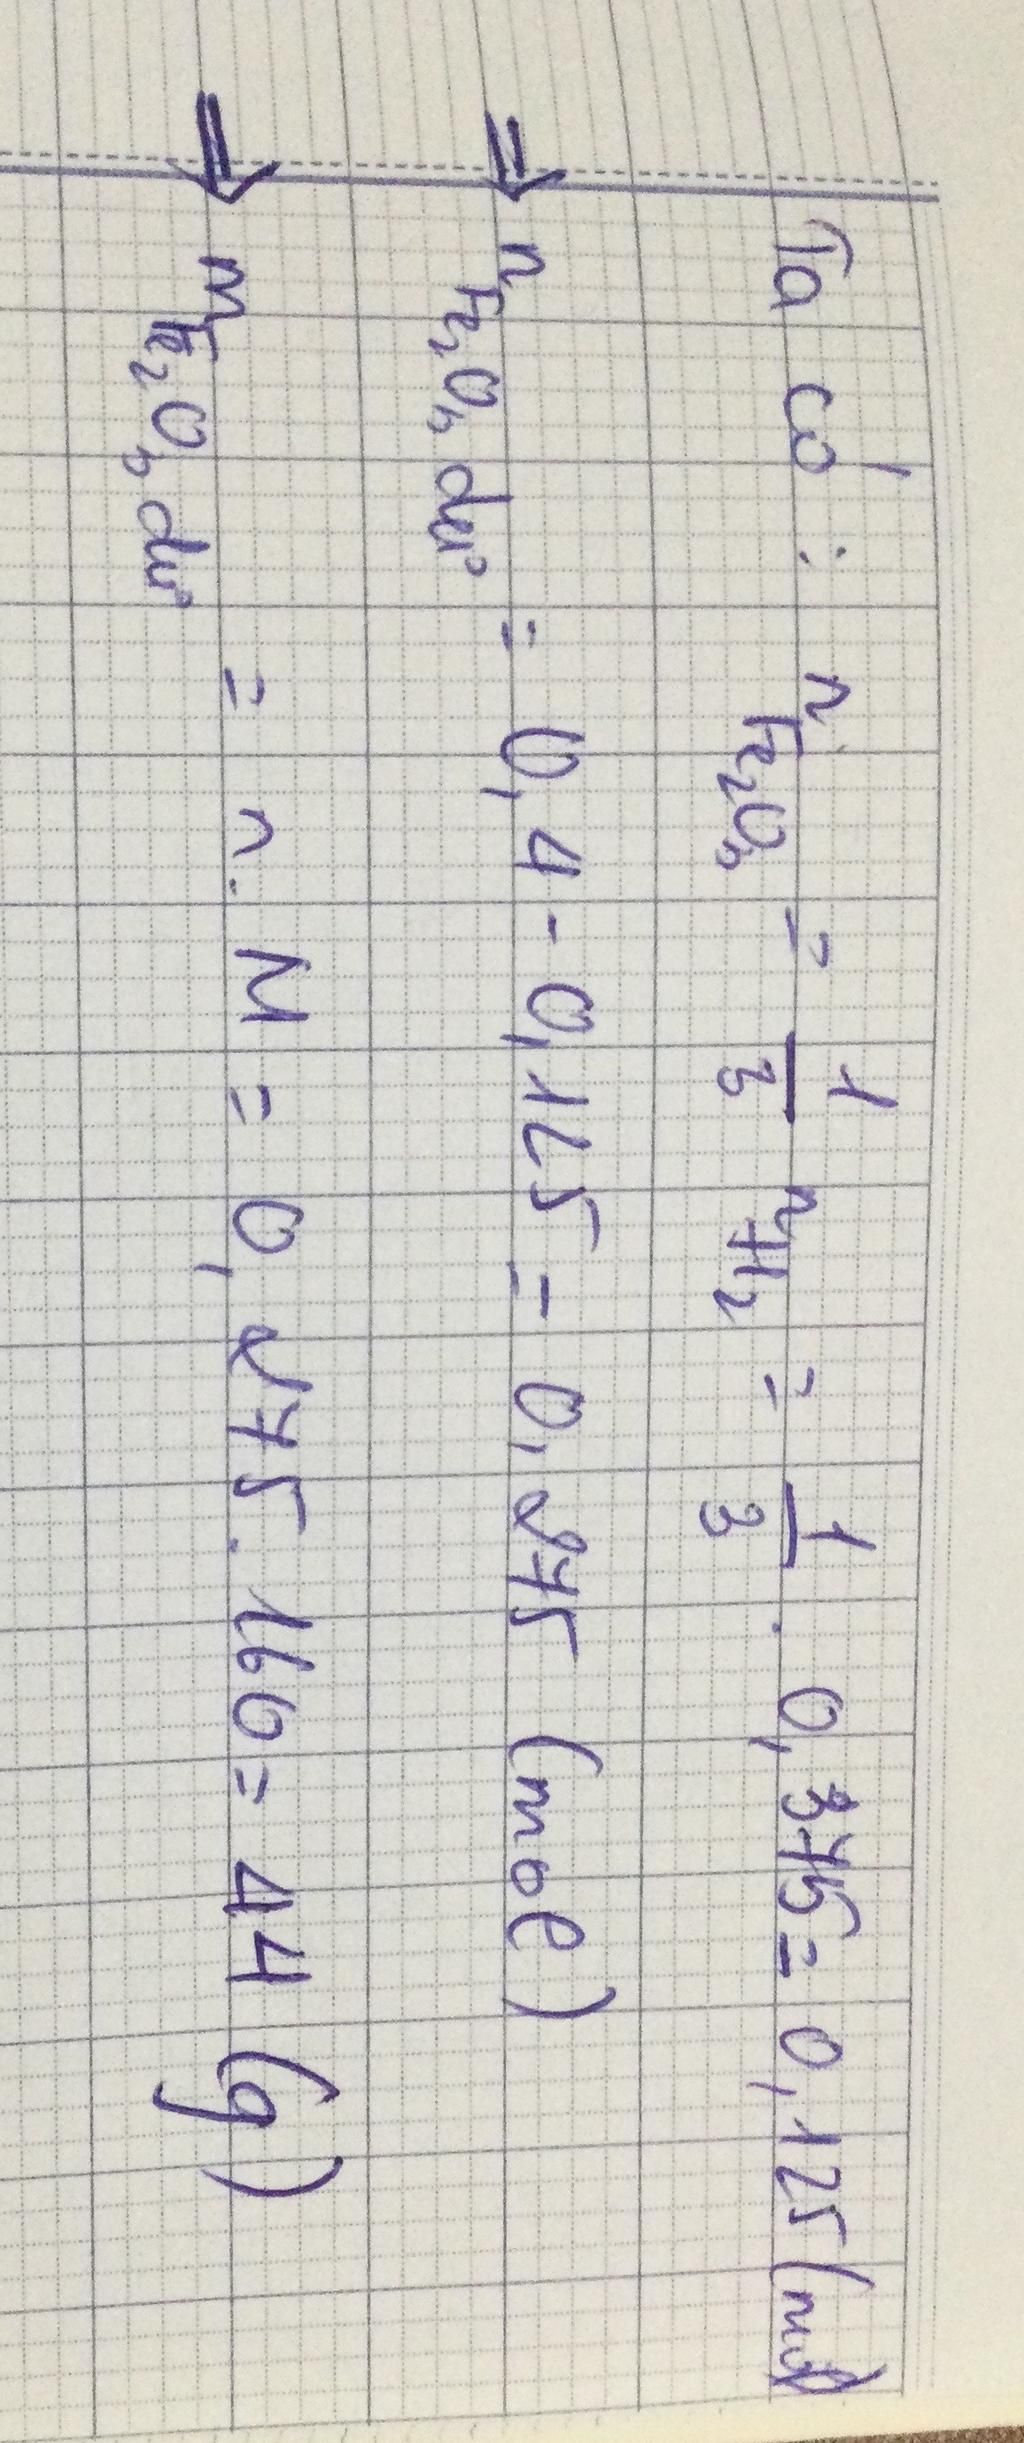 Ta có : n Fe2O3 = 1/3 n H2 = 1/3 . 0,375 = 0,125 (mol)
⇒ n Fe2O3 dư = 0,4 - 0,125 = 0,275 (mol)
⇒ m Fe2O3 dư = n . M = 0,275 . 160 = 44 (g)